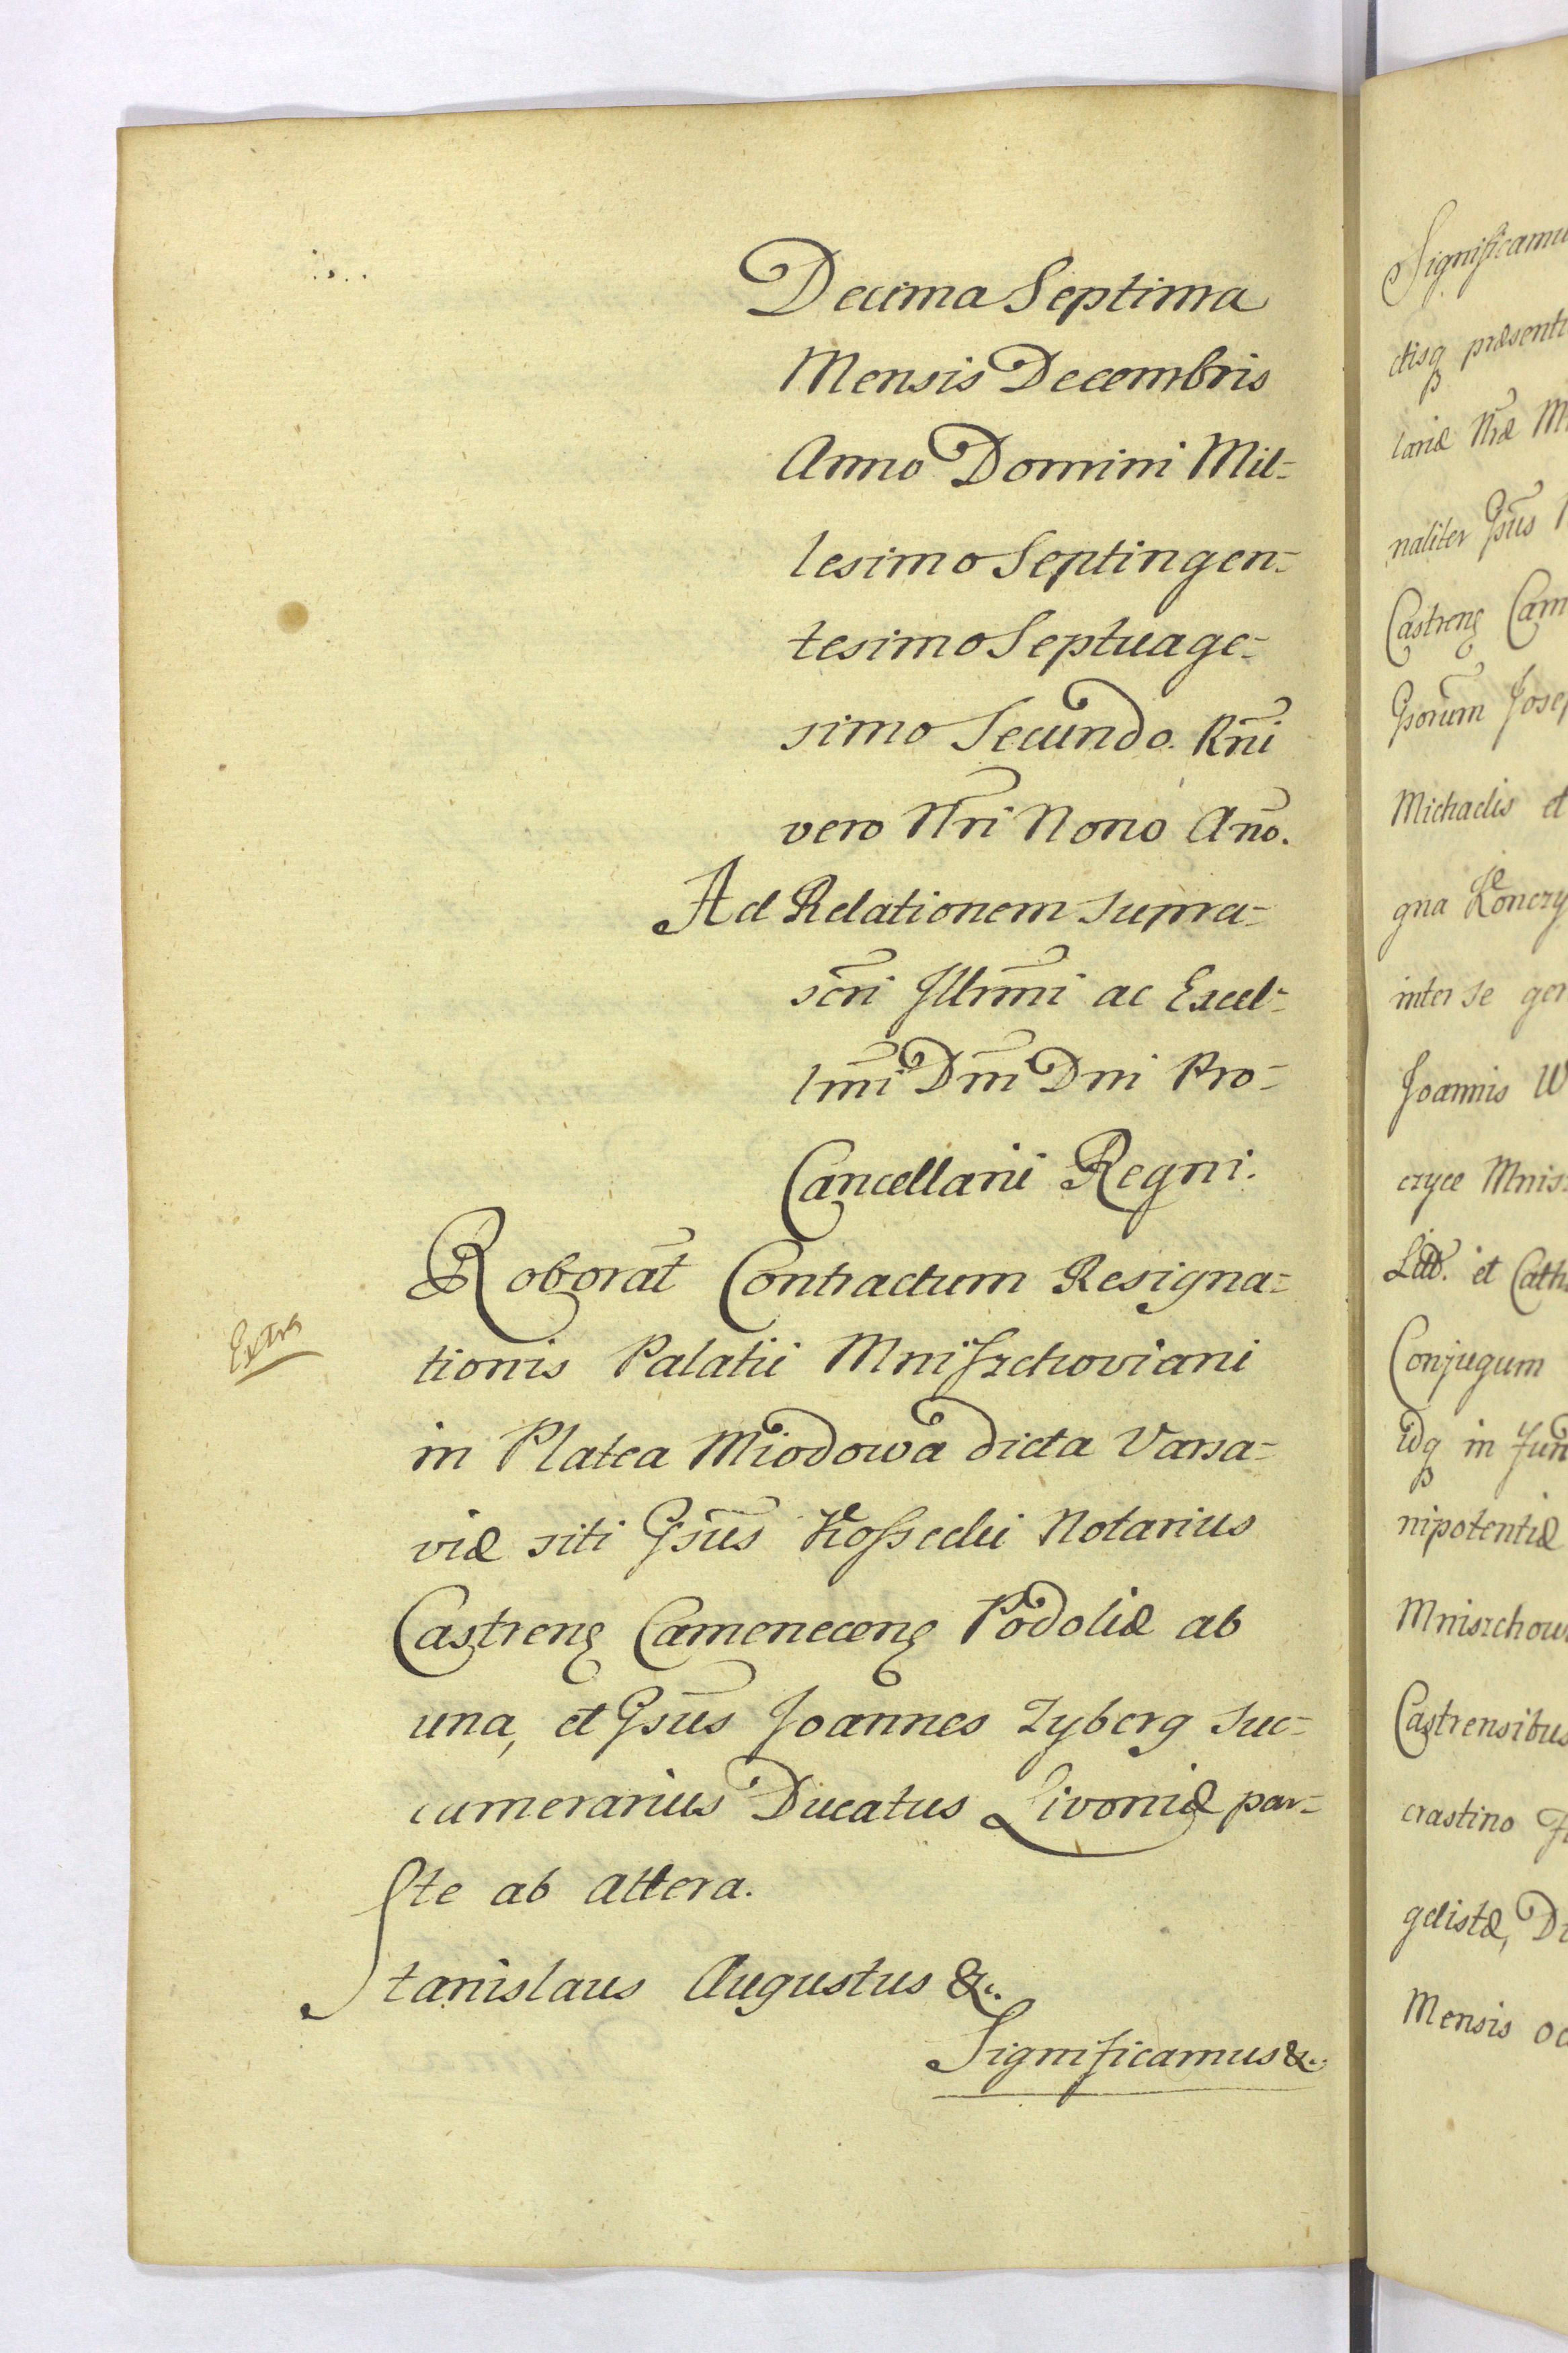 Decima Septima
Mensis Decembris
Anno Domini Mil=
lesimo Septingen=
tesimo Septuage=
simo Secundo. Rñi
vero Nri Nono Año.
Ad Relationem supra=
scri Illrmi ac Excel=
lmi Dni Dni Pro=
Cancellarii Regni.
Roborat Contractum Resigna=
Extra
tionis Palatii Mniszchoviani
in Platea Miodowa dicta Varsa=
viæ siti Gsus Kossecki Notarius
Castrens Camenecens Podoliæ ab
una, et Gsus Joannes Zyberg Suc=
camerarius Ducatus Livoniæ par=
te ab altera.
Stanislaus Augustus &.
Significamus &.
Significamu
ctisq præsenti
lariæ Nræ M
naliter Gsus
Castrens Cam
Gsorum Jose
Michaelis et
gna Konczy
inter se ger
Joannis W
cryce Mnis
Litt. et Cath
Conjugum
idq in Fun
nipotentiæ
Mniszchow
Castrensibus
crastino
gelistæ, Di
Mensis Oc